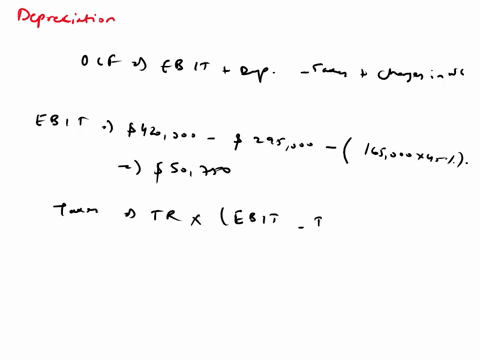 Depreciation
OCF => EBIT + Dep. - Taxes + Changes in WC
EBIT => $420,000 - $295,000 - (165,000x45%).
=> $50,750
Taxes => TR x (EBIT - I